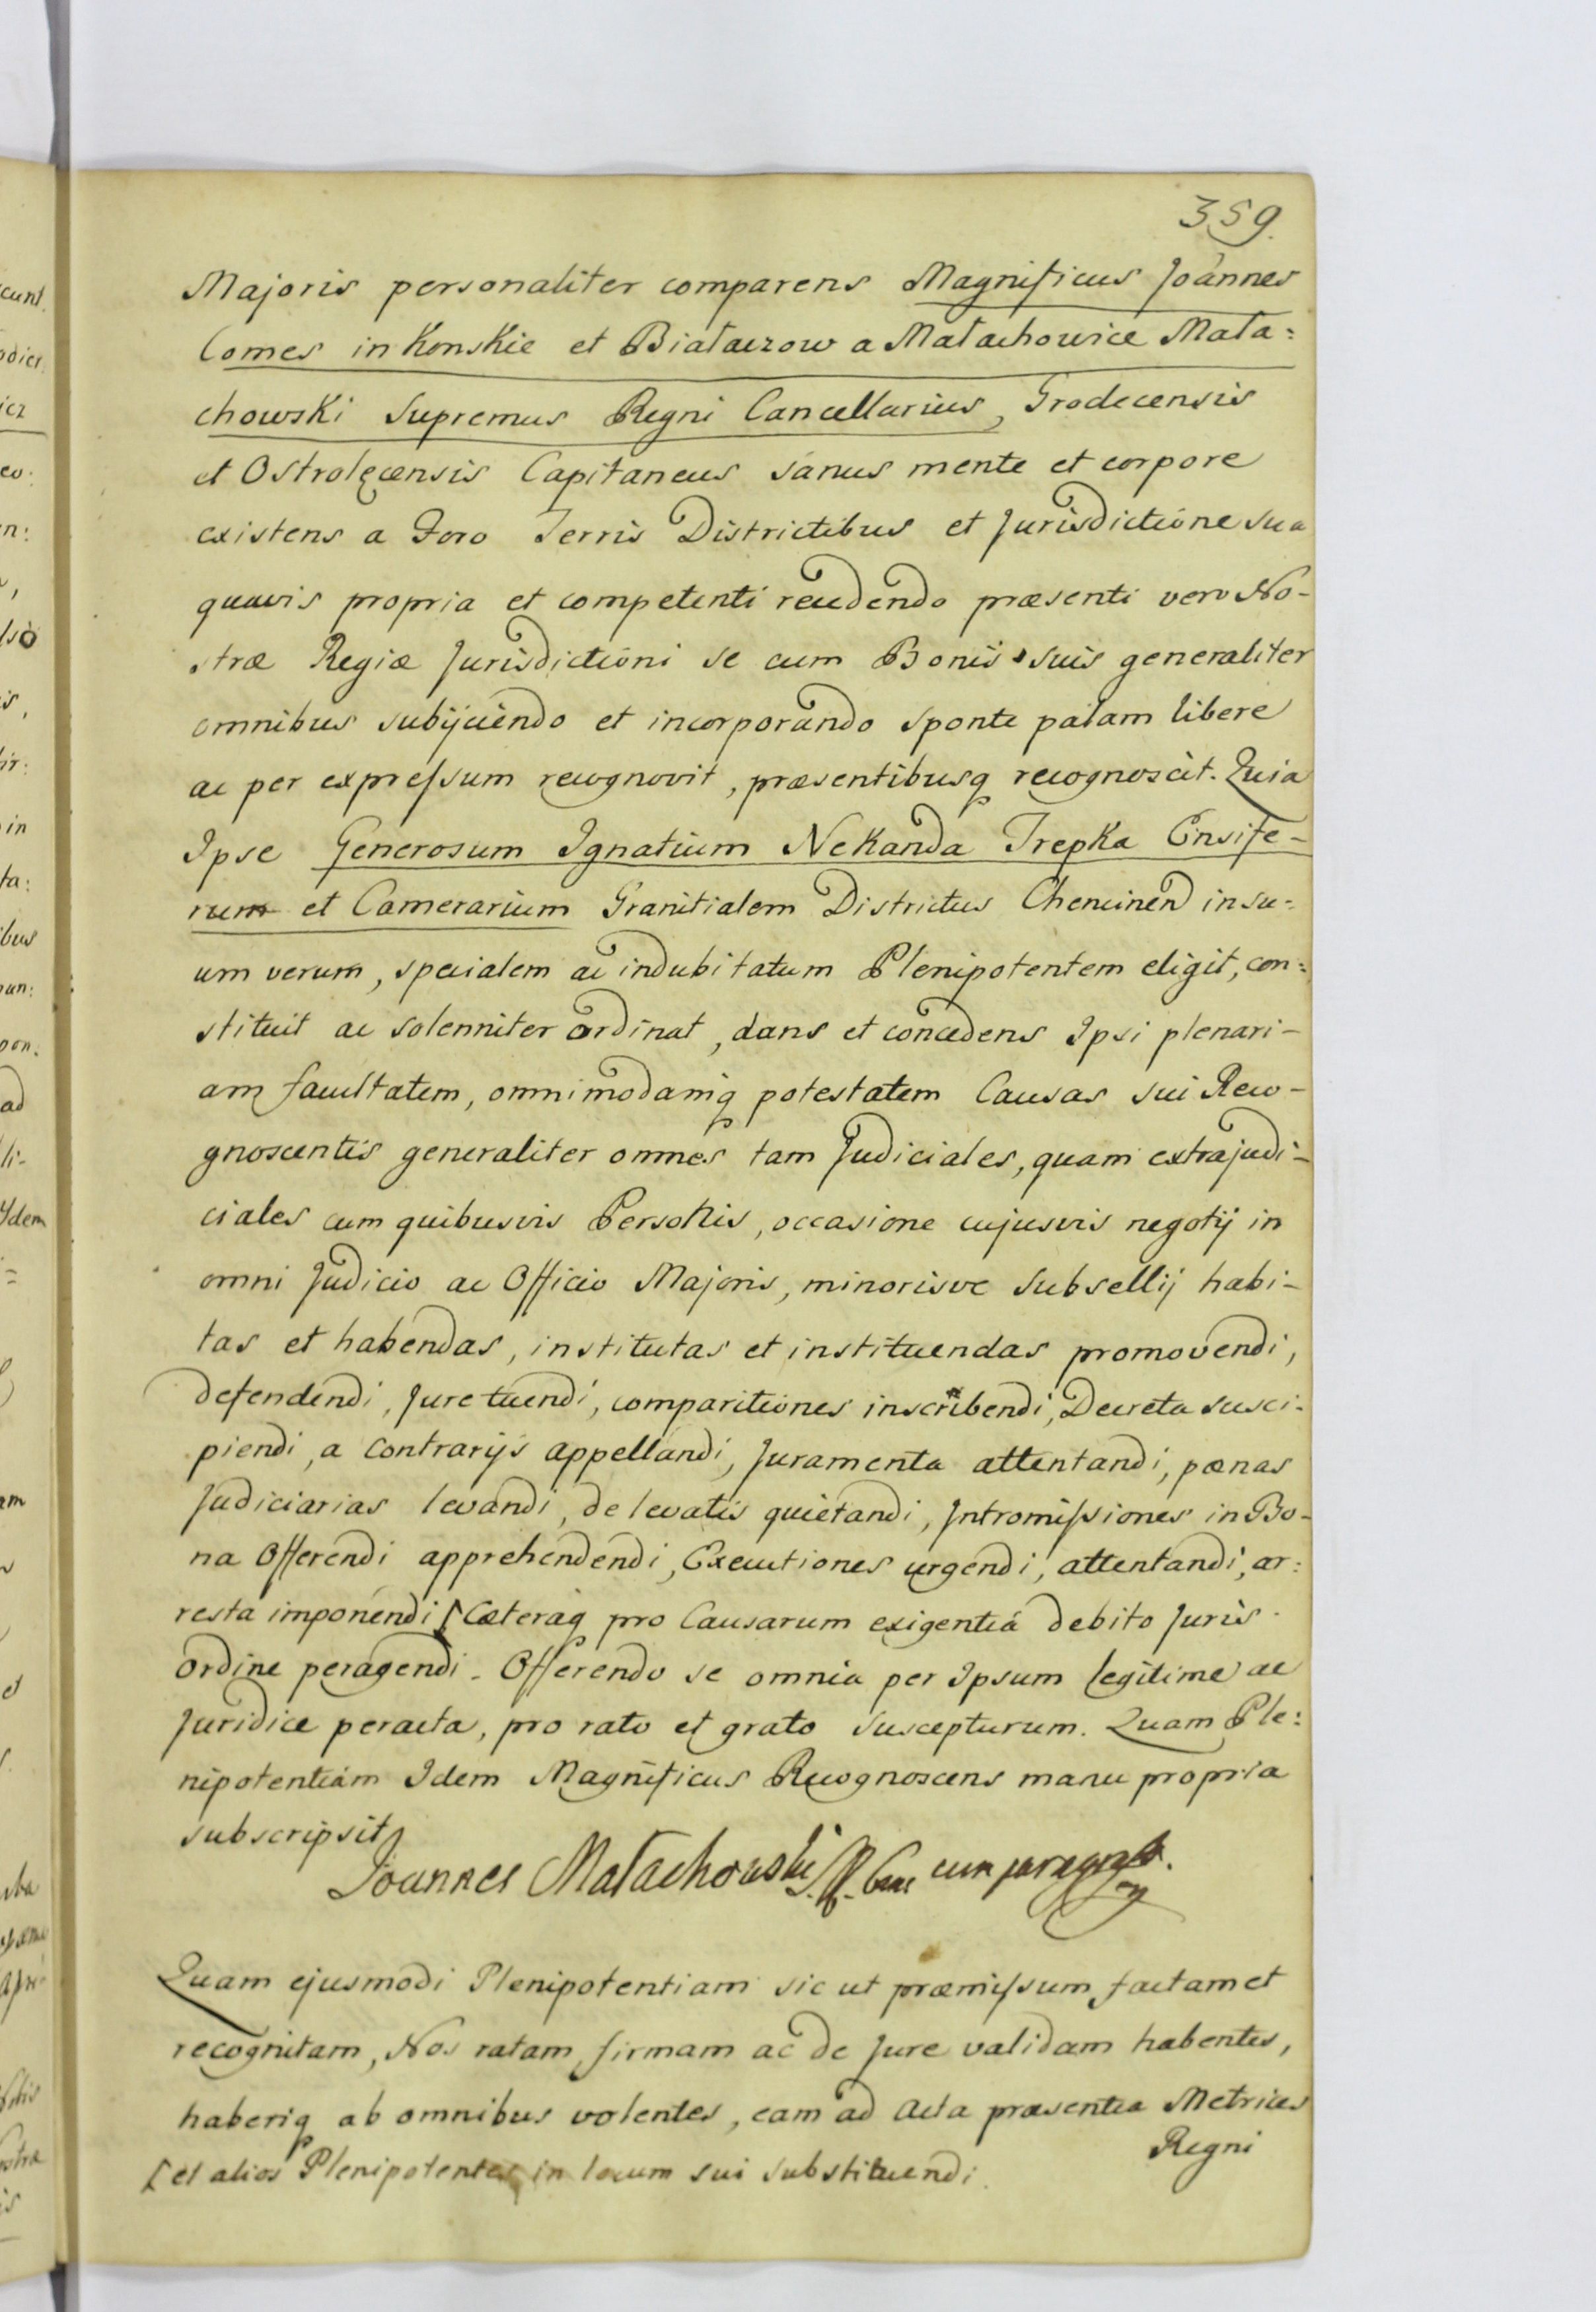 359.
Majoris personaliter comparens Magnificus Joannes
Comes in Konskie et Białaczow a Małachowice Mała=
chowski Supremus Regni Cancellarius, Grodecensis
et Ostrolęcensis Capitaneus sanus mente et corpore
existens a Foro Terris Districtibus et Jurisdictione sua
quavis propria et competenti recedendo præsenti vero No-
stræ Regiæ Jurisdictioni se cum Bonis suis generaliter
omnibus subijciendo et incorporando sponte palam libere
ac per expressum recognovit, præsentibusq recognoscit. Quia
Ipse Generosum Ignatium Nekanda Trepka Ensife-
rum et Camerarium Granitialem Districtus Chencinen in su=
um verum, specialem ac indubitatum Plenipotentem eligit, con=
stituit ac solenniter ordinat, dans et concedens Ipsi plenari-
am facultatem, omnimodamq potestatem Causas sui Reco-
gnoscentis generaliter omnes tam Judiciales, quam extrajudi-
ciales cum quibusvis Personis, occasione cujusvis negotij in
omni Judicio ac Officio Majoris, minorisve Subsellij habi-
tas et habendas, institutas et instituendas promovendi,
defendendi, Jure tuendi, comparitiones inscribendi, Decreta susci-
piendi, a contrarijs appellandi, Juramenta attentandi, pænas
Judiciarias levandi, de levatis quietandi, Intromissiones in Bo-
na Offerendi apprehendendi, Executiones urgendi, attentandi, ar=
resta imponendi [Cæteraq pro Causarum exigentia debito Juris
ordine peragendi. Offerendo se omnia per Ipsum legitime ac
Juridice peracta, pro rato et grato suscepturum. Quam Ple=
nipotentiam Idem Magnificus Recognoscens manu propria
subscripsit
Joannes Małachowski S. R. Canc cum paragrapho.
Quam ejusmodi Plenipotentiam sic ut præmissum factam et
recognitam, Nos ratam firmam ac de Jure validam habentes,
haberiq ab omnibus volentes, eam ad Acta præsentia Metrices
Regni
[et alios Plenipotentes in locum sui substituendi.